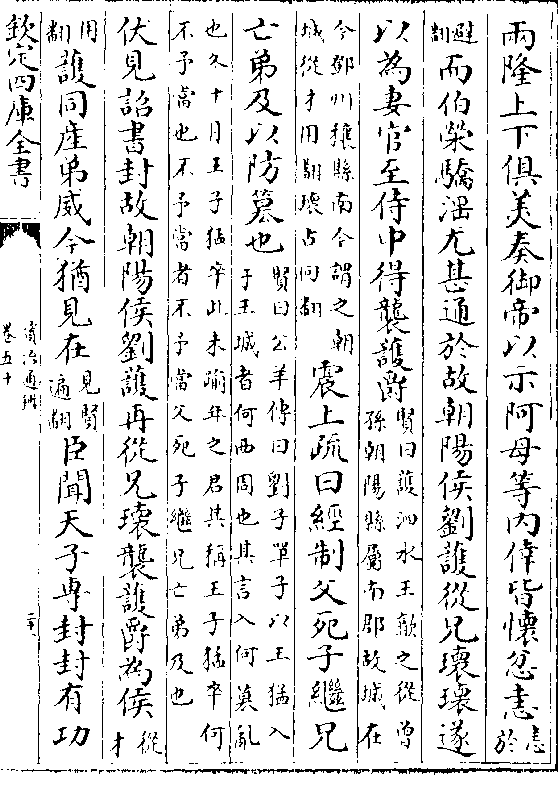 兩隆上下俱美奏御帝以示阿母等内倖皆懷忿恚恚於
避翻而伯榮驕淫尤甚通於故朝陽侯劉護從兄瓌瓌遂
以為妻官至侍中得襲護爵賢曰護泗水王歙之從曾孫朝陽縣屬南郡故城在
今鄧州穰縣南今謂之朝城從才用翻瓌古回翻震上疏曰經制父死子繼兄
亡弟及以防簒也賢曰公羊傳曰劉子單子以王猛入于王城者何西周也其言入何簒亂
也冬十月王子猛卒此未踰年之君其稱王子猛卒何不予當也不予當者不予當父死子繼兄亡弟及也
伏見詔書封故朝陽侯劉護再從兄瓌襲護爵為侯從才
用翻護同産弟威今猶見在見賢遍翻臣聞天子専封封有功
欽定四庫全書
資治通鑑
卷五十